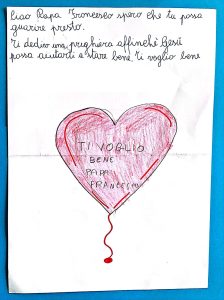 Ciao Papa Francesco spero che tu possa
guarire presto.
Ti dedico una preghiera affinchè Gesù
possa aiutarti a stare bene. Ti voglio bene
TI VOGLIO
BENE
PAPA
FRANCESCO